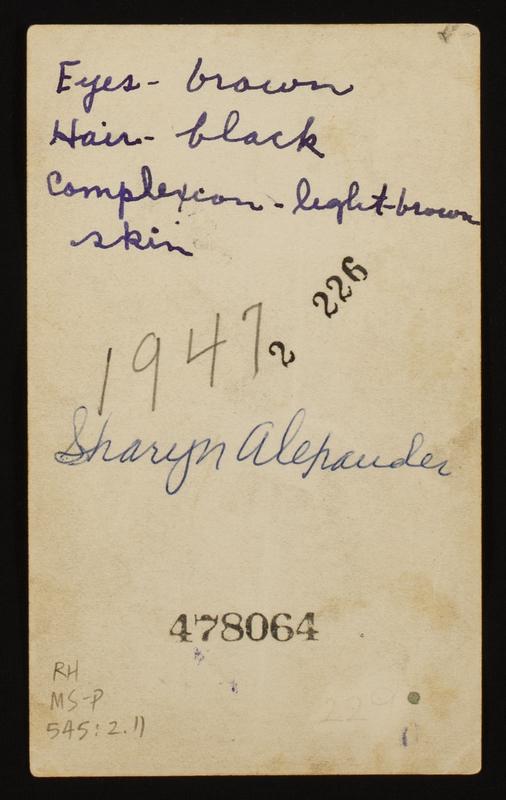 Eyes - brown
Hair - black
Complexion - light-brown
skin
2 226
1947
Sharyn Alexander
478064
RH
MS-P
545:2.11